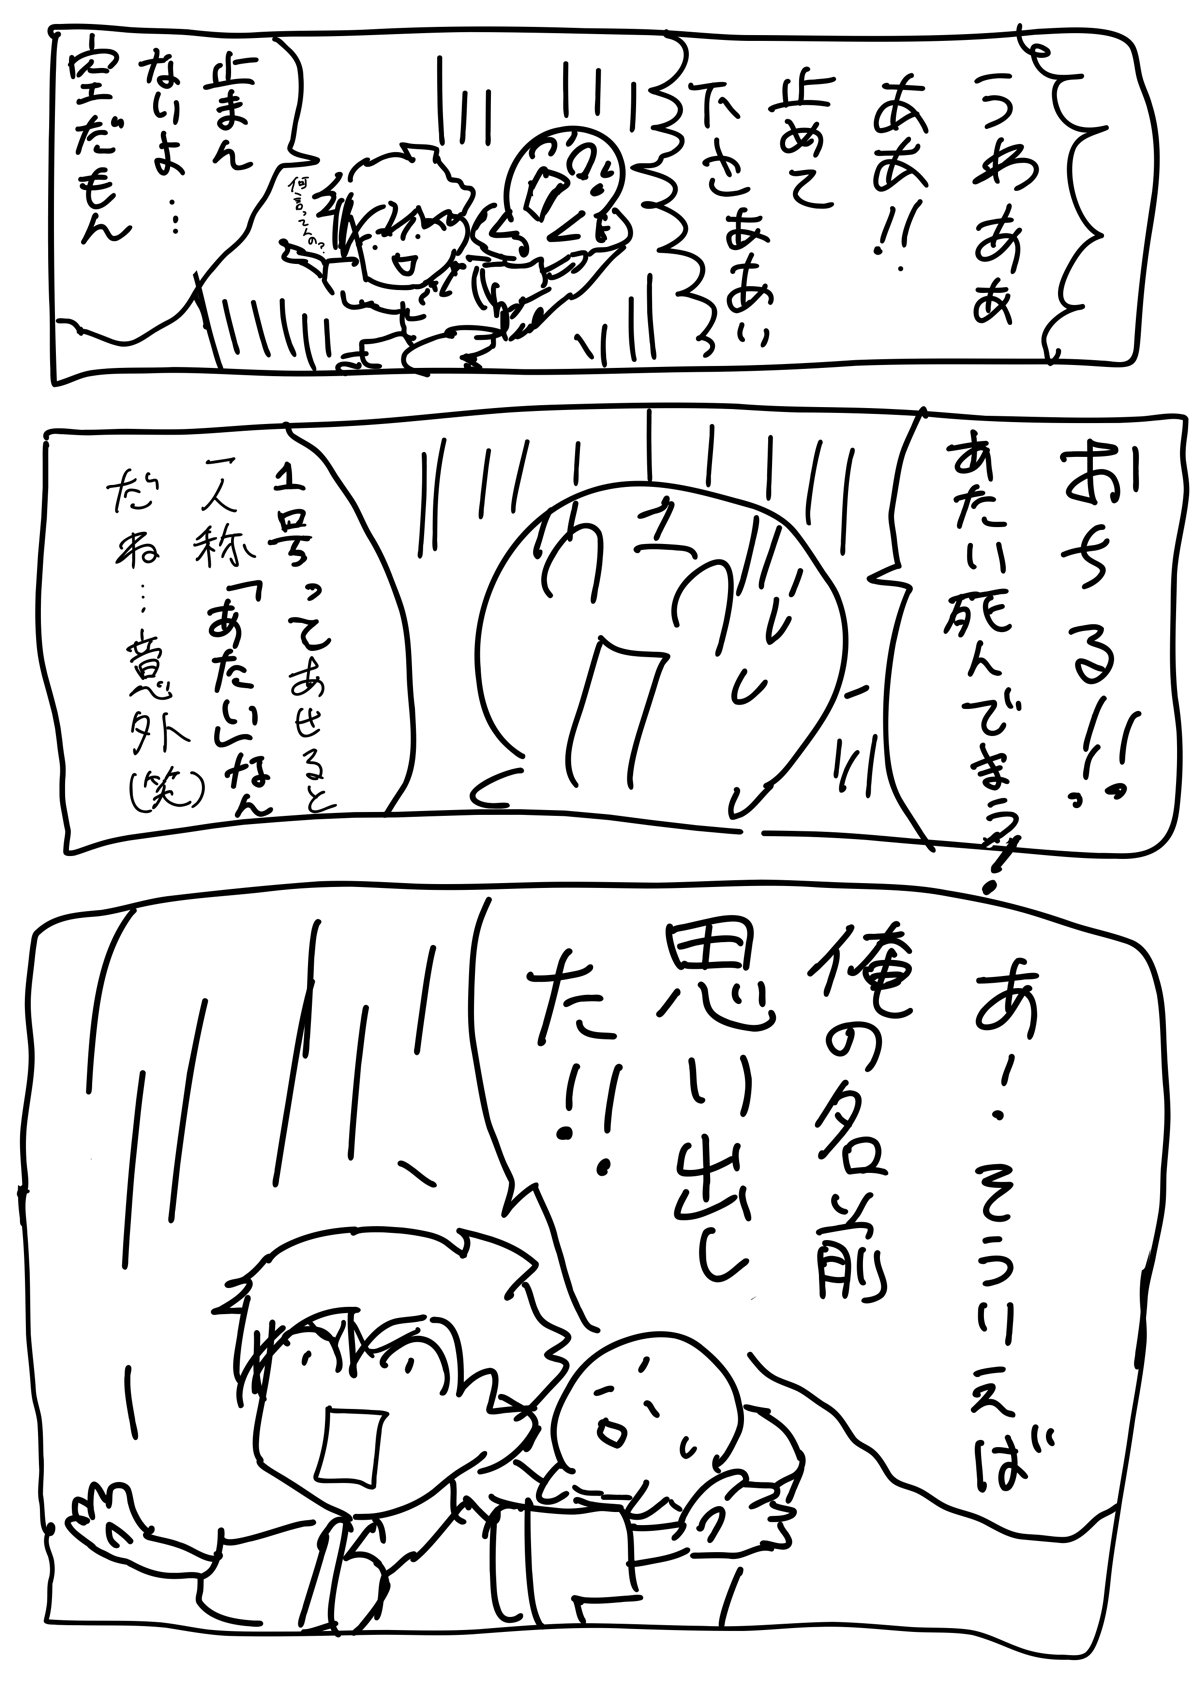 うわあぁ
ああ!!
止めて
下さぁあい
何言ってんの?
止まん
ないよ…
空だもん
おちる!!
あたい死んでまう!
1号ってあせると
一人称「あたい」なん
だね…意外(笑)
あー・そういえば
俺の名前
思い出し
た!!